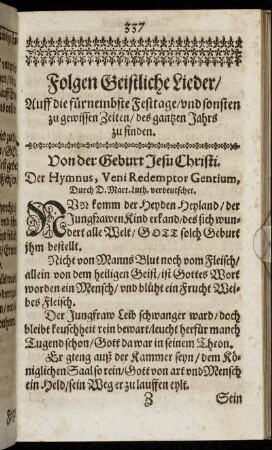 337
Folgen Geistliche Lieder/
Auff die fürneinbste Festtage/vnd sonsten
zu gewissen Zeiten/des gantzen Jahrs
zu finden.
Von der Geburt Jesu Christi.
Der Hymnus, Veni Redemptor Gentium,
Durch D. Mart. Luth. verdeutschet.
NVn komm der Heyden Heyland/der
Jungfrawen Kind erkand/des sich wun-
dert alle Welt/GOTT solch Geburt
jhm bestellt.
Nicht von Manns Blut noch vom Fleisch/
allein von dem heiligen Geist/ist Gottes Wort
worden ein Mensch/vnd blüht ein Frucht Wei-
bes Fleisch.
Der Jungfraw Leib schwanger ward/doch
bleibt keuschheit rein bewart/leucht herfür manch
Tugend schon/Gott da war in seinem Thron.
Er gieng auß der Kammer seyn/dem Kö-
niglichen Saal so rein/Gott von art vnd Mensch
ein Held/sein Weg er zu lauffen eylt.
Z Sein